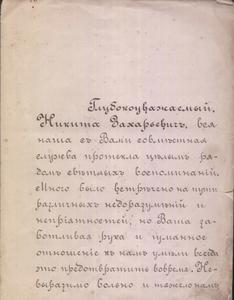 Глубокоуважаемый,
Никита Захарьевичъ, вся
наша съ Вами совмѣстная
служба протекла цѣлымъ ря-
домъ свѣтлыхъ воспоминаній.
Много было встрѣчено на пути
различныхъ недоразумѣній и
непріятностей, но Ваша за-
ботливая рука и гуманное
отношеніе къ намъ умѣли всегда
это предотвратить вовремя. Не-
выразимо больно и тяжело намъ